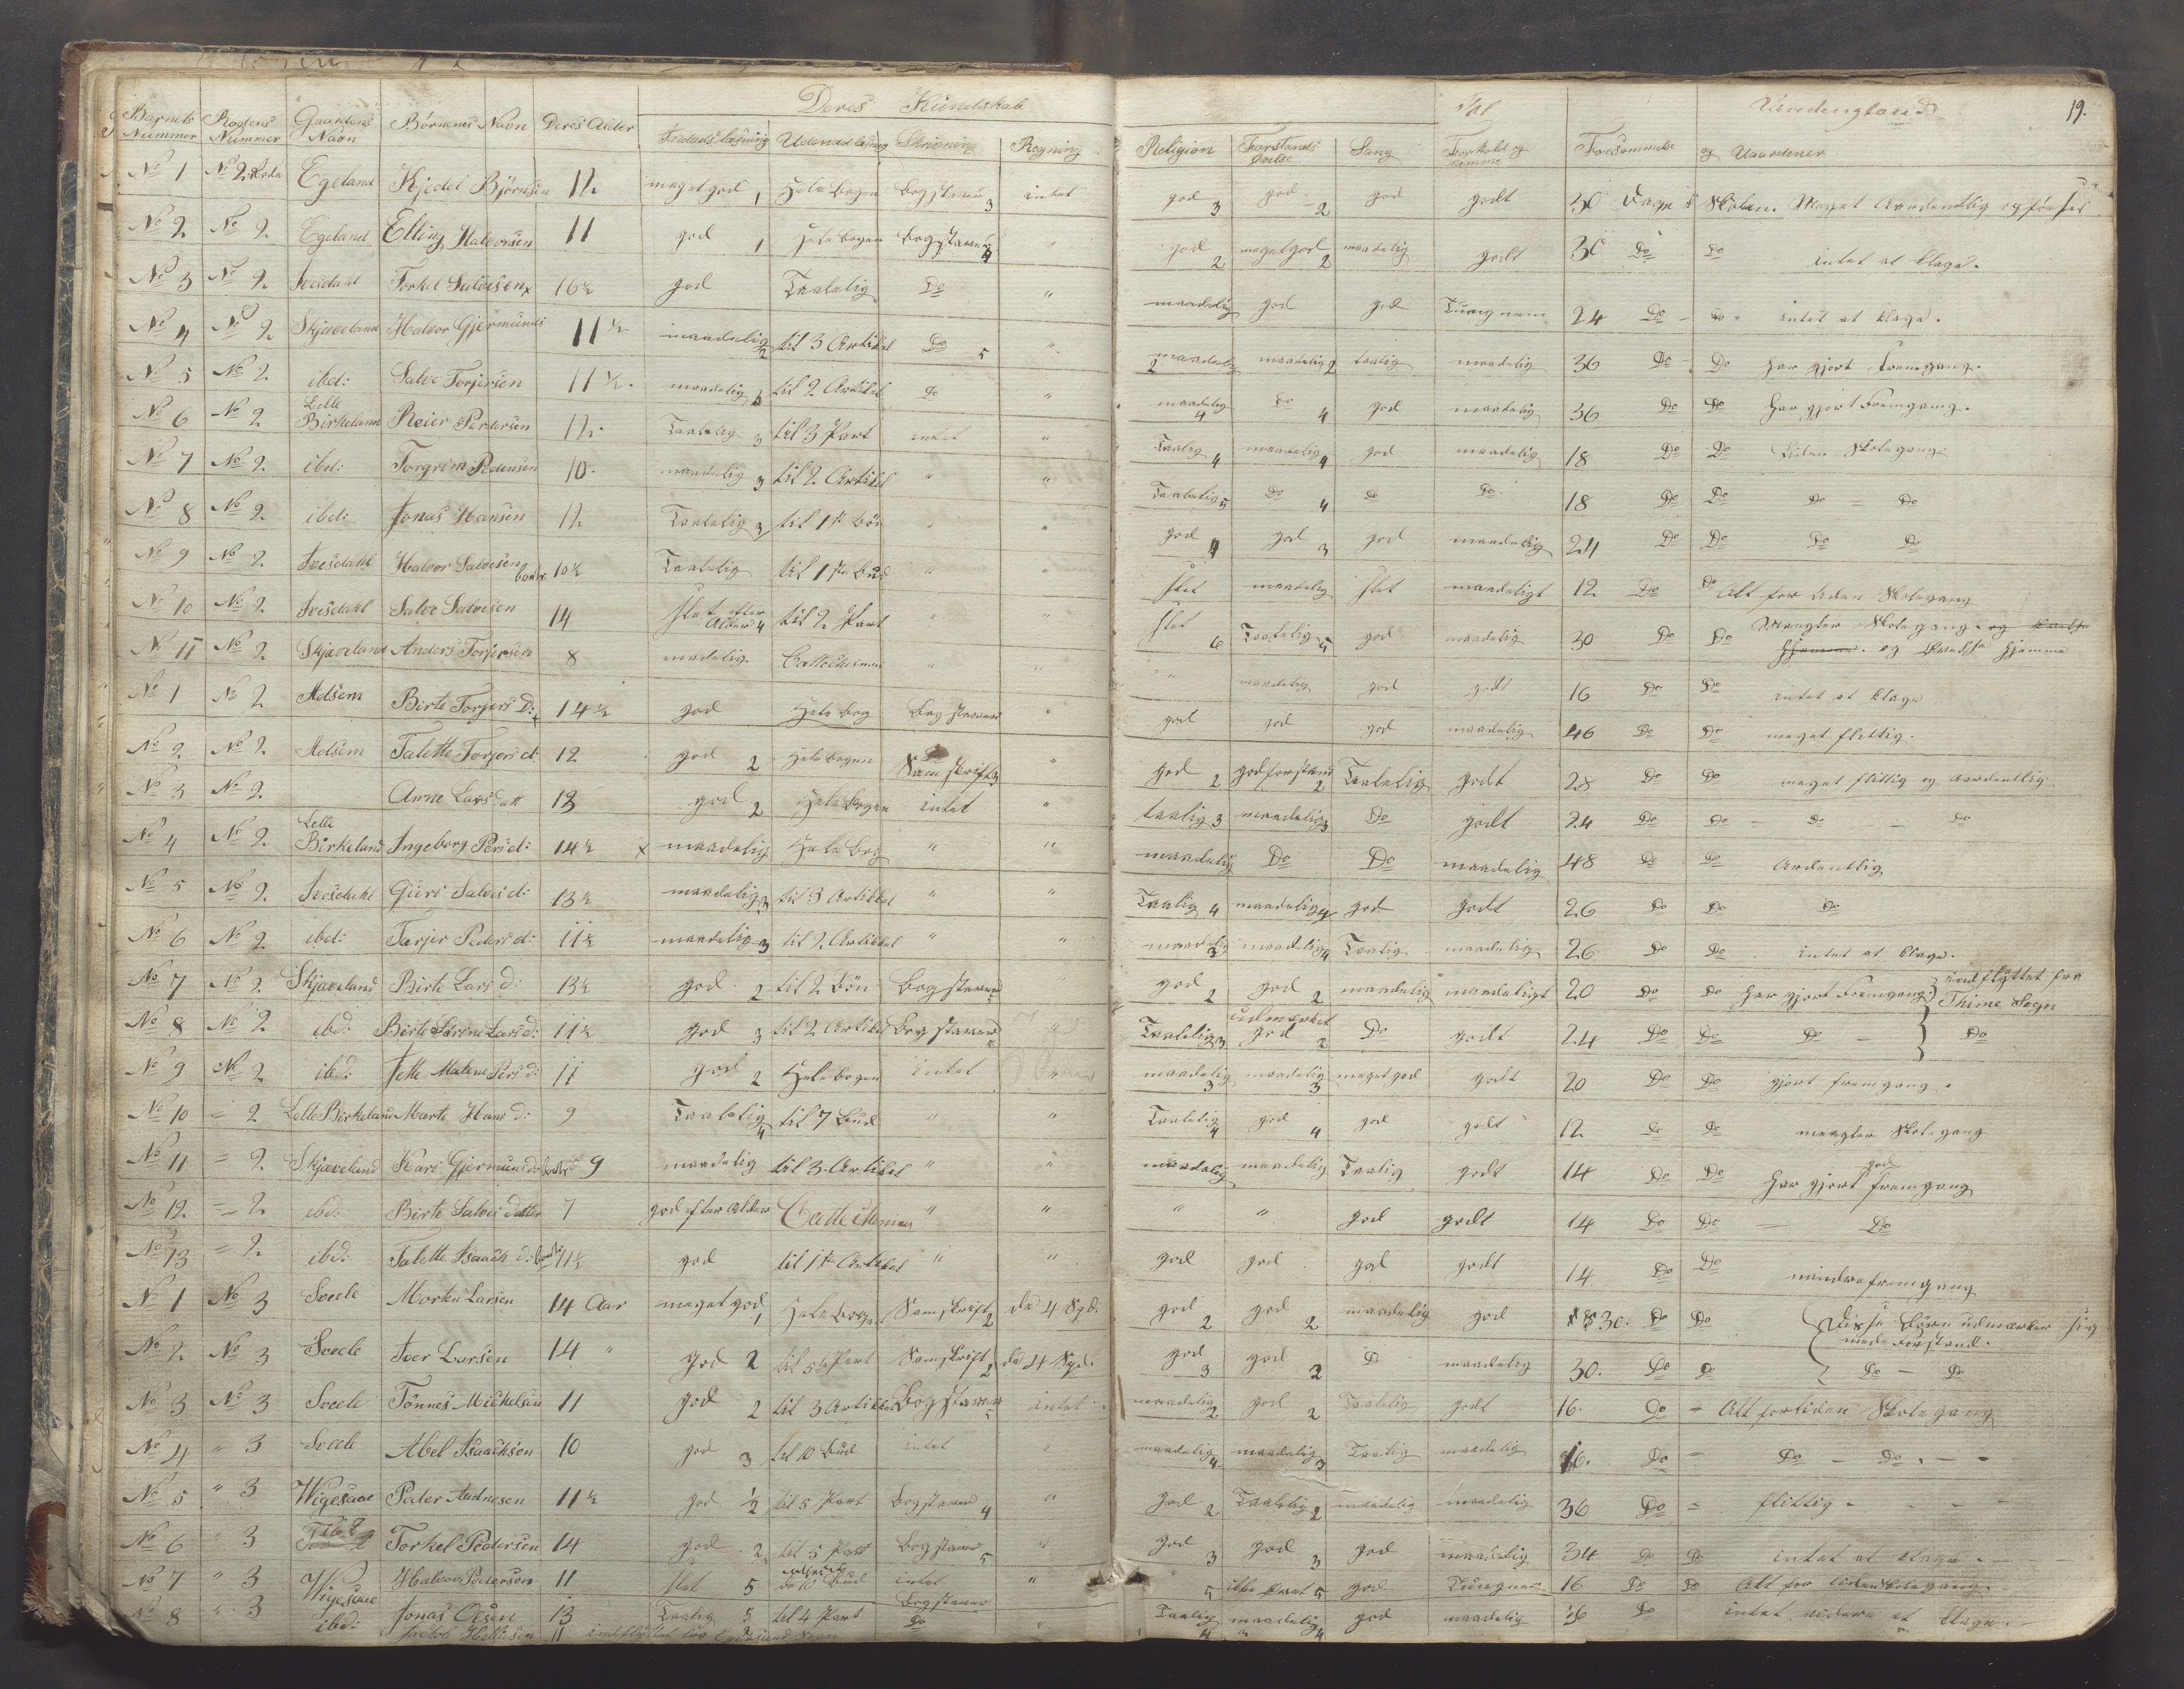 Deres Kundskab
19.
Barnets Nummer Rodens Nummer Gaardens Navn Børnenes Navn Deres Alder Indadslæsning Udenadlæsning Skrivning Regning Religion Forstands Sang Forhold og nemme Forsømmelse og Uaardener
No 1 No 2 Rode Egeland Kjedel Bjørnsen 12 meget god 1 Hele bogen bogstaver 3 intet god 3 god 2 god godt 30 Dage Skolen. Meget
No 2 No 2 Egeland Elling Halvorsen 11 god 1 Hele bogen bogstaver 4 " god 2 meget god 2 maadelig godt 30 Do Do intet at klage.
No 3 No 2 Ivesdahl Torkel Salvesen x 16½ god Taalelig Do " maadelig god god Tung nem 24 Do Do intet at klage.
No 4 No 2 Skjæveland Halvor Gjermunds 11½ maadelig 2 til 3 Artikel Do 5 " maadelig 2 maadelig 2 taalig maadelig 36 Do Do har gjort Fremgang.
No 5 No 2 ibd: Salve Torjersen 11½ maadelig 4 til 2 Artikel Do " maadelig 4 Do 4 god maadelig 36 Do Do har gjort Fremgang.
No 6 No 2 Lelle Birkeland Reier Pedersen 12 Taalelig 3 til 3 Part intet " Taalig 4 maadelig 4 god maadelig 18 Do Do Liden Skolegang
No 7 No 2 ibd: Torgrim Pedersen 10 maadelig 3 til 2 Artikel " " Taalelig 5 Do 4 Do Do 18 Do Do Do - Do
No 8 No 2 ibd: Jonas Hansen 12 Taalelig 3 til 1ste bøn " " god 4 god 3 god maadelig 24 Do Do Do Do
No 9 No 2 Ivesdahl Halvor Salvesen 10½ Taalelig til 1ste Bud " " slet maadelig slet maadeligt 12 Do Do Alt for liden Skolegang
No 10 No 2 Ivesdahl Salve Salvesen 14 slet efter Alder 4 til 2 Part " " slet 6 Taalelig 5 god maadelig 30 Do Do Mangler Skolegang og hjemme
No 11 No 2 Skjæveland Anders Torjersen 8 madelig. Cattechismus " " " maadelig god godt 16 Do Do intet at klage
No 1 No 2 Motsem Birte Torjers D: x 14½ god Hele bog bogstaver " god god god maadelig 46 Do Do meget flittig.
No 2 No 2 Motsem Talette Torjers d: 12 god 2 Hele bogen Samskrift " god 2 god forstand 2 Taalelig godt 28 Do Do meget flittig og aardentlig
No 3 No 2 Anne Lars datt 13 god 2 Hele bogen intet " taalig 3 maadelig 3 Do godt 24 Do Do - Do - Do
No 4 No 2 Lelle Birkeland Ingeborg Pers d: 14½ x maadelig Hele bog " " maadelig Do Do maadelig 48 Do Do Ardentlig
No 5 No 2 Ivesdahl Guri Salves d: 13½ maadelig 3 til 3 Artikkel " " Taalig 4 maadelig 4 god godt 26 Do Do Do
No 6 No 2 ibd: Torjer Peders d: 11½ maadelig 3 til 2 Artikkel " " maadelig 3 maadelig 4 Taalig maadelig 26 Do Do intet at klage.
No 7 No 2 Skjæveland Birte Lars d: 13½ god 2 til 2 bøn bogstaver " god 2 god 2 maadelig maadeligt 20 Do Do har gjort Fremgang indflyttet fra Thime Sogn
No 8 No 2 ibd: Birte Serine Lars d: 11½ god 3 til 2 Artikel bogstaver " Taalelig 3 udmærket god 2 Do godt 24 Do Do Do - Do
No 9 No 2 ibd: Jette Malene Pers d: 11 god 2 Hele bogen intet " maadelig 3 maadelig 3 meget god godt 20 Do Do gjort fremgang.
No 10 = 2 Lelle Birkeland Marte Hans d: 9 Taalelig 4 til 7 Bud " " Taalelig 4 god 4 god godt 12 Do Do mangler Skolegang
No 11 = 2 Skjæveland Kari Gjermunds d: 9 maadelig til 3 Artikel " " maadelig maadelig Taalig godt 14 Do Do har gjort god fremgang
No 12 = 2 ibd: Birte Salves datter 7 god efter alder Cattechismus " " " " god godt 14 Do Do Do
No 13 = 2 ibd: Talette Isaach d: 11½ god til 1ste Artikel " " god god god godt 14 Do Do mindre fremgang
No 1 No 3 Svele Morten Larsen 14 Aar meget god 1 Hele bogen Samskrift 2 de 4 Spd. god 2 god 2 maadelig god 30. Do Do Disse Børn udmærker sig med Forstand.
No 2 No 3 Svele Iver Larsen 14 " god 2 til 5te Part Samskrift 2 de 4 Spd. god 3 god 2 Do maadelig 30. Do Do Do - Do
No 3 No 3 Svele Tønnes Michelsen 11 god 2 til 3 Artikel Bogstaver 5 intet maadelig 2 god 2 Taalelig godt 16. Do = Alt for liden Skolegang
No 4 " 3 Svele Abel Isaachsen 10 god 3 til 10 Bud intet " maadelig 4 maadelig 3 Taalig maadelig 16. Do = Do - Do. - -
No 5 " 3 Wigesaae Peder Audnesen 11½ god ½ til 5 Part bogstaver 4 " god 2 Taalelig 2 maadelig maadelig 36 Do = flittig -
No 6 " 3 Torkel Pedersen 14 god 2 til 5 Part Bogstaver 5 " god 3 god 3 god maadelig 34 Do Do intet at klage.
No 7 " 3 Wigesaae Halvor Pedersen 11 slet 5 10 Bud intet " 5 5 god Tungnem 16 Do Do Alt for liden Skolegang.
No 8 " 3 ibd: Jonas Olsen 13 Taalig 5 til 4 Part bogstaver Do " Taalig 4 maadelig 4 god maadelig 16 Do intet videre at klage.
Jacob 11 indflyttet Egersund Sogn